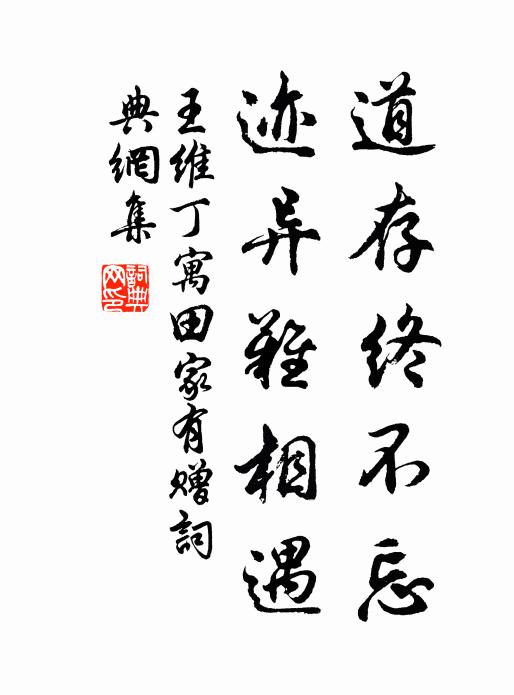 道存终不忘
迹异难相遇
王维丁寓田家有赠詞
典網集
詞典網印